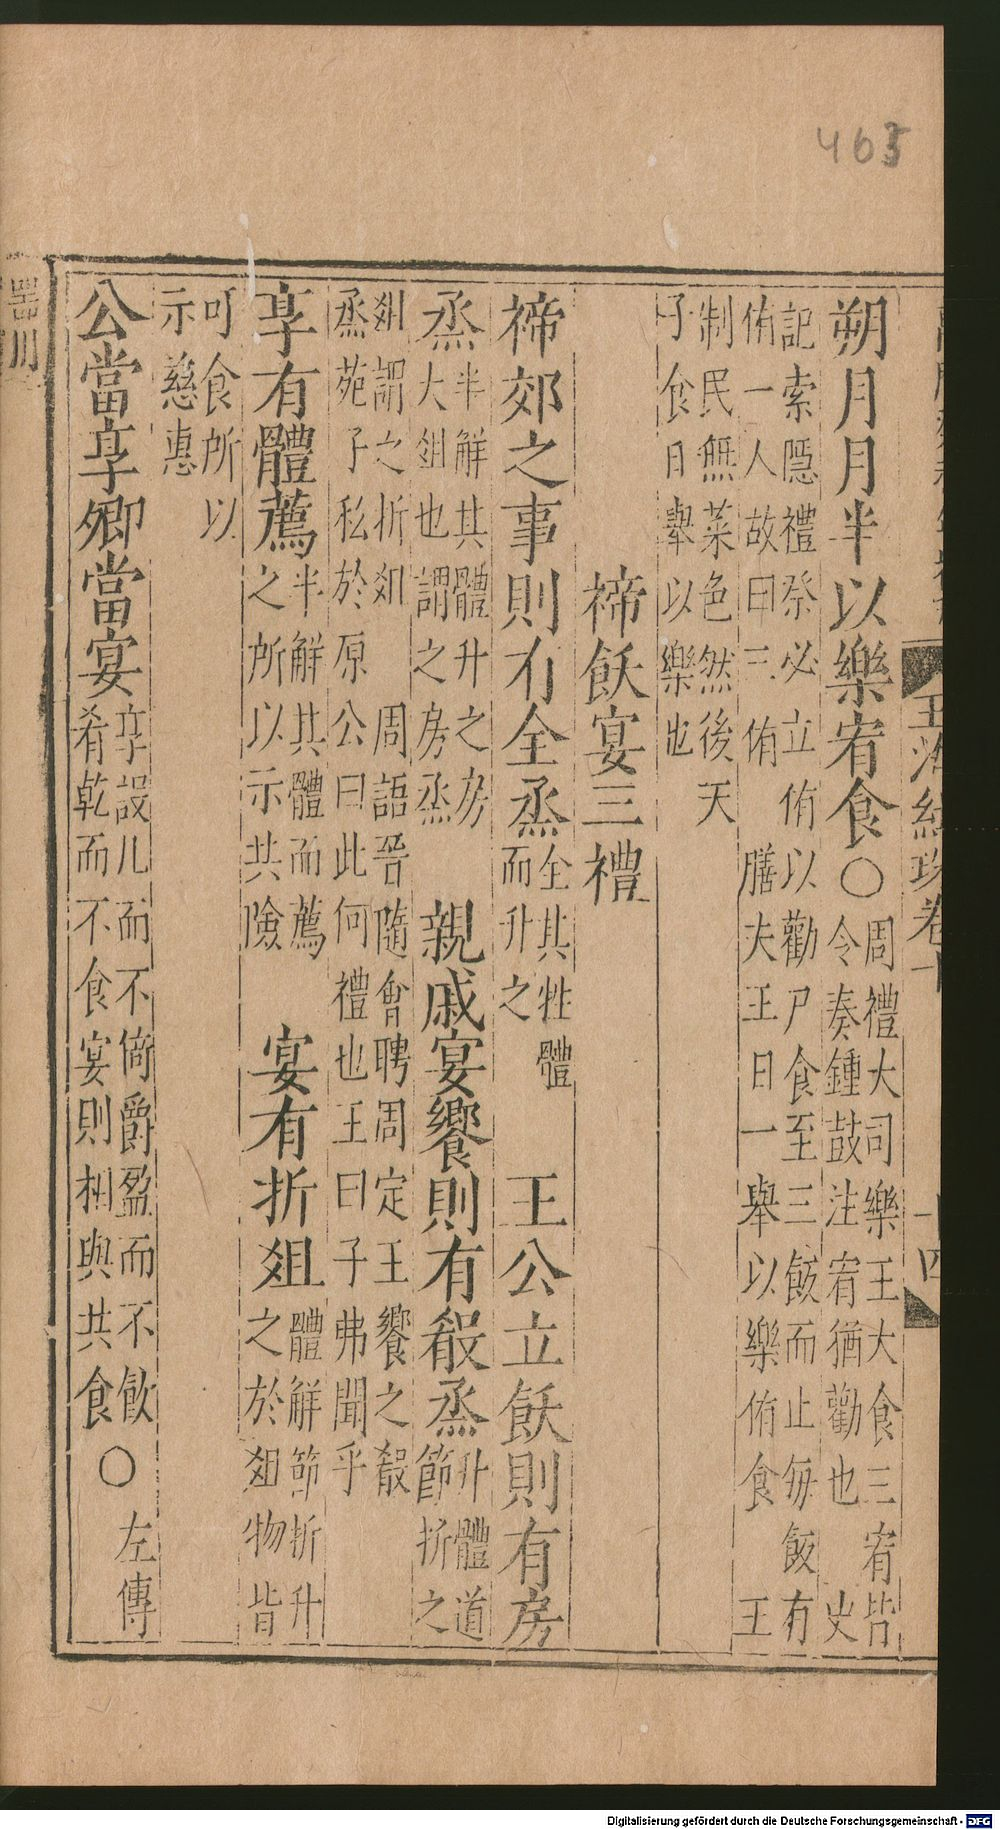 463
玉海紀珠卷十
十四
朔月月半以樂宥食○周禮大司樂王大食三宥皆
令奏鍾鼓注宥猶勸也 史
記索隱禮祭必立侑以勸尸食至三飯而止每飯有
侑一人故曰三侑 膳夫王日一舉以樂侑食 王
制民無菜色然後天
子食日舉以樂也
禘飫宴三禮
禘郊之事則有全烝全其牲體
而升之 王公立飫則有房
烝半解其體升之房
大俎也謂之房烝 親戚宴饗則有殽烝升體道
節折之
俎謂之折俎 周語晉隨會聘周定王饗之殽
烝范子私於原公曰此何禮也王曰子弗聞乎
享有體薦半解其體而薦
之所以示共險 宴有折俎體解節折升
之於俎物皆
可食所以
示慈惠
公當享卿當宴享設几而不倚爵盈而不飲
肴乾而不食宴則相與共食 ○ 左傳
Digitalisierung gefördert durch die Deutsche Forschungsgemeinschaft - DFG